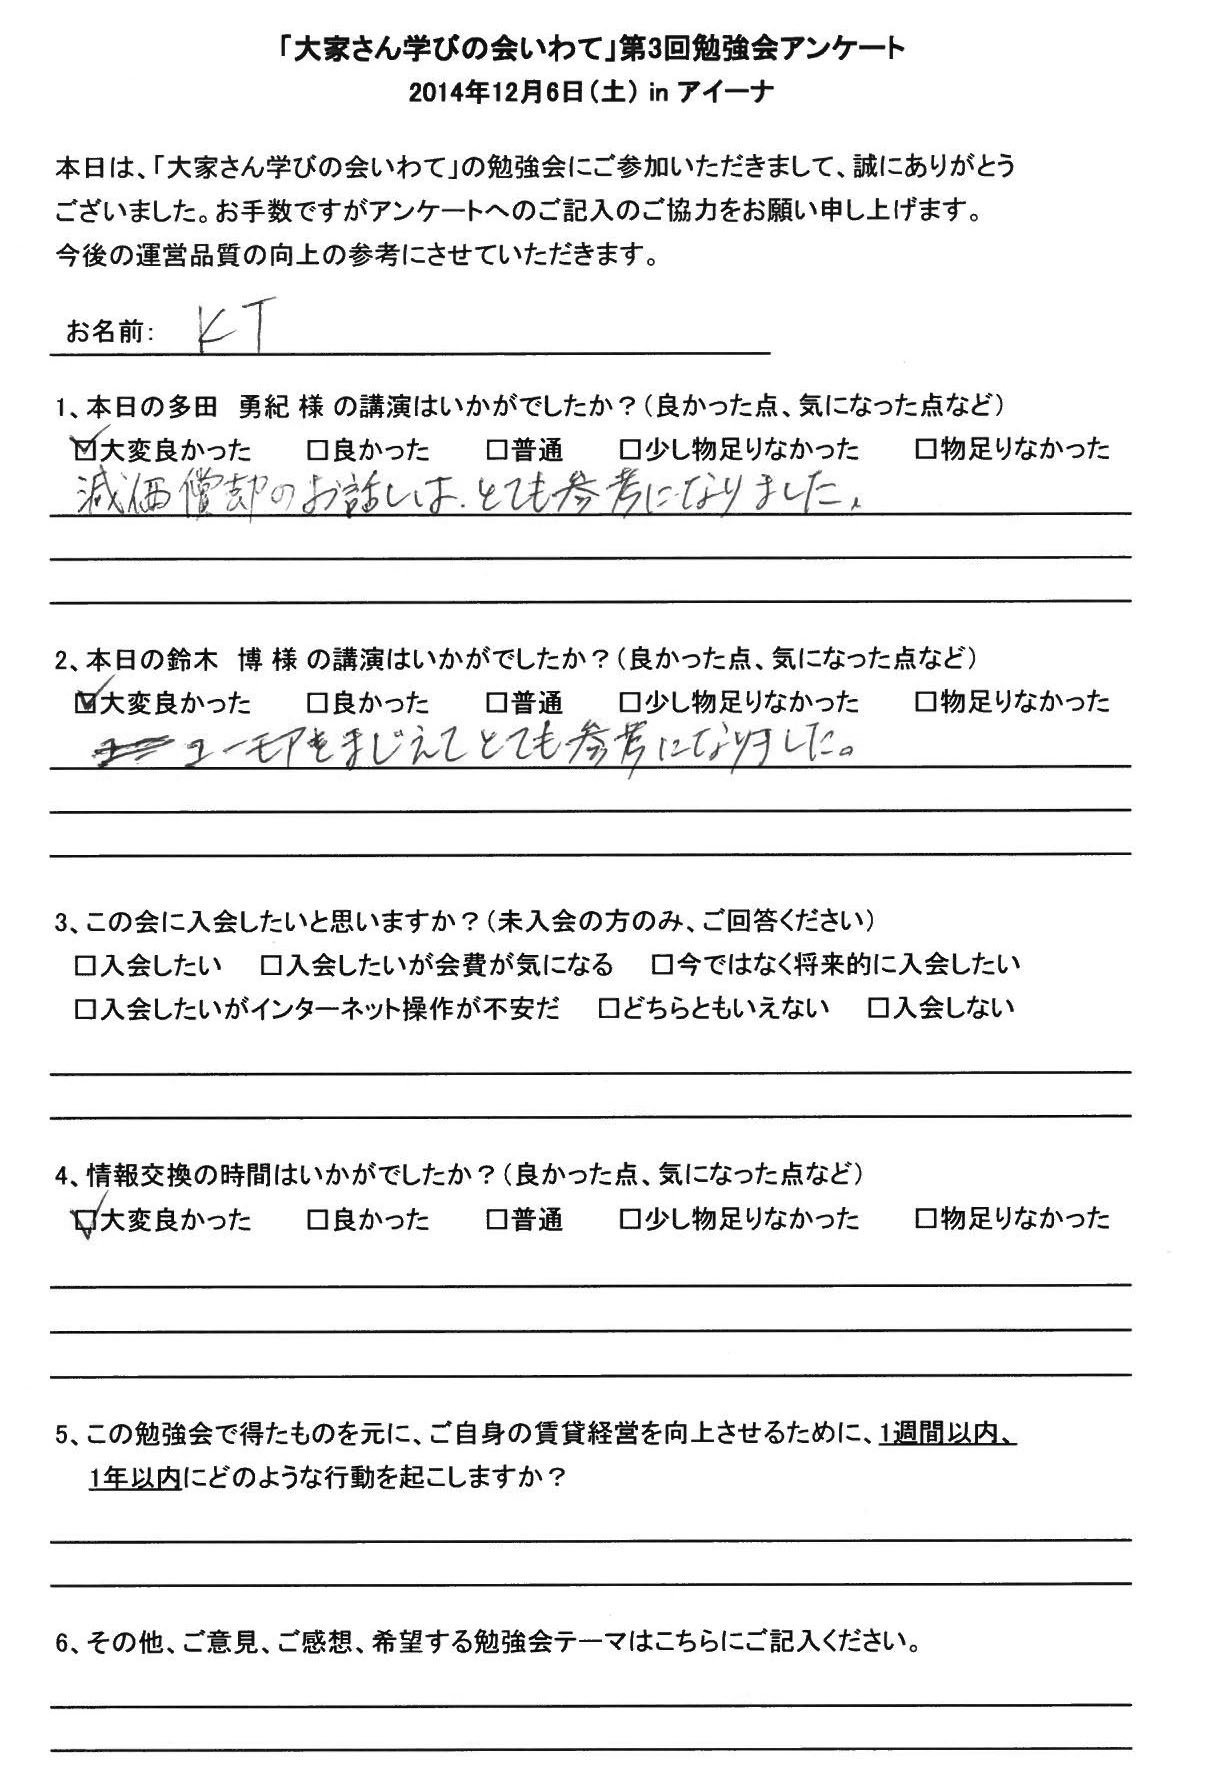 「大家さん学びの会いわて」第3回勉強会アンケート
2014年12月6日(土) in アイーナ
本日は、「大家さん学びの会いわて」の勉強会にご参加いただきまして、誠にありがとう
ございました。お手数ですがアンケートへのご記入のご協力をお願い申し上げます。
今後の運営品質の向上の参考にさせていただきます。
お名前: KT
1、本日の多田 勇紀 様 の講演はいかがでしたか?(良かった点、気になった点など)
☑大変良かった □良かった □普通 □少し物足りなかった □物足りなかった
減価償却のお話しは、とても参考になりました。
2、本日の鈴木 博 様 の講演はいかがでしたか?(良かった点、気になった点など)
☑大変良かった □良かった □普通 □少し物足りなかった □物足りなかった
ユーモアをまじえてとても参考になりました。
3、この会に入会したいと思いますか?(未入会の方のみ、ご回答ください)
□入会したい □入会したいが会費が気になる □今ではなく将来的に入会したい
□入会したいがインターネット操作が不安だ □どちらともいえない □入会しない
4、情報交換の時間はいかがでしたか?(良かった点、気になった点など)
☑大変良かった □良かった □普通 □少し物足りなかった □物足りなかった
5、この勉強会で得たものを元に、ご自身の賃貸経営を向上させるために、1週間以内、
1年以内にどのような行動を起こしますか?
6、その他、ご意見、ご感想、希望する勉強会テーマはこちらにご記入ください。